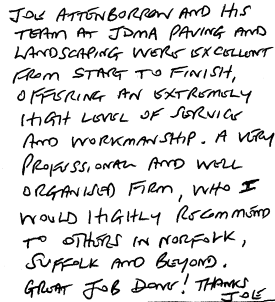 JOE ATTENBORROW AND HIS
TEAM AT JDMA PAVING AND
LANDSCAPING WERE EXCELLENT
FROM START TO FINISH,
OFFERING AN EXTREMELY
HIGH LEVEL OF SERVICE
AND WORKMANSHIP. A VERY
PROFESSIONAL AND WELL
ORGANISED FIRM, WHO I
WOULD HIGHLY RECOMMEND
TO OTHERS IN NORFOLK,
SUFFOLK AND BEYOND.
GREAT JOB DONE! THANKS
JOE